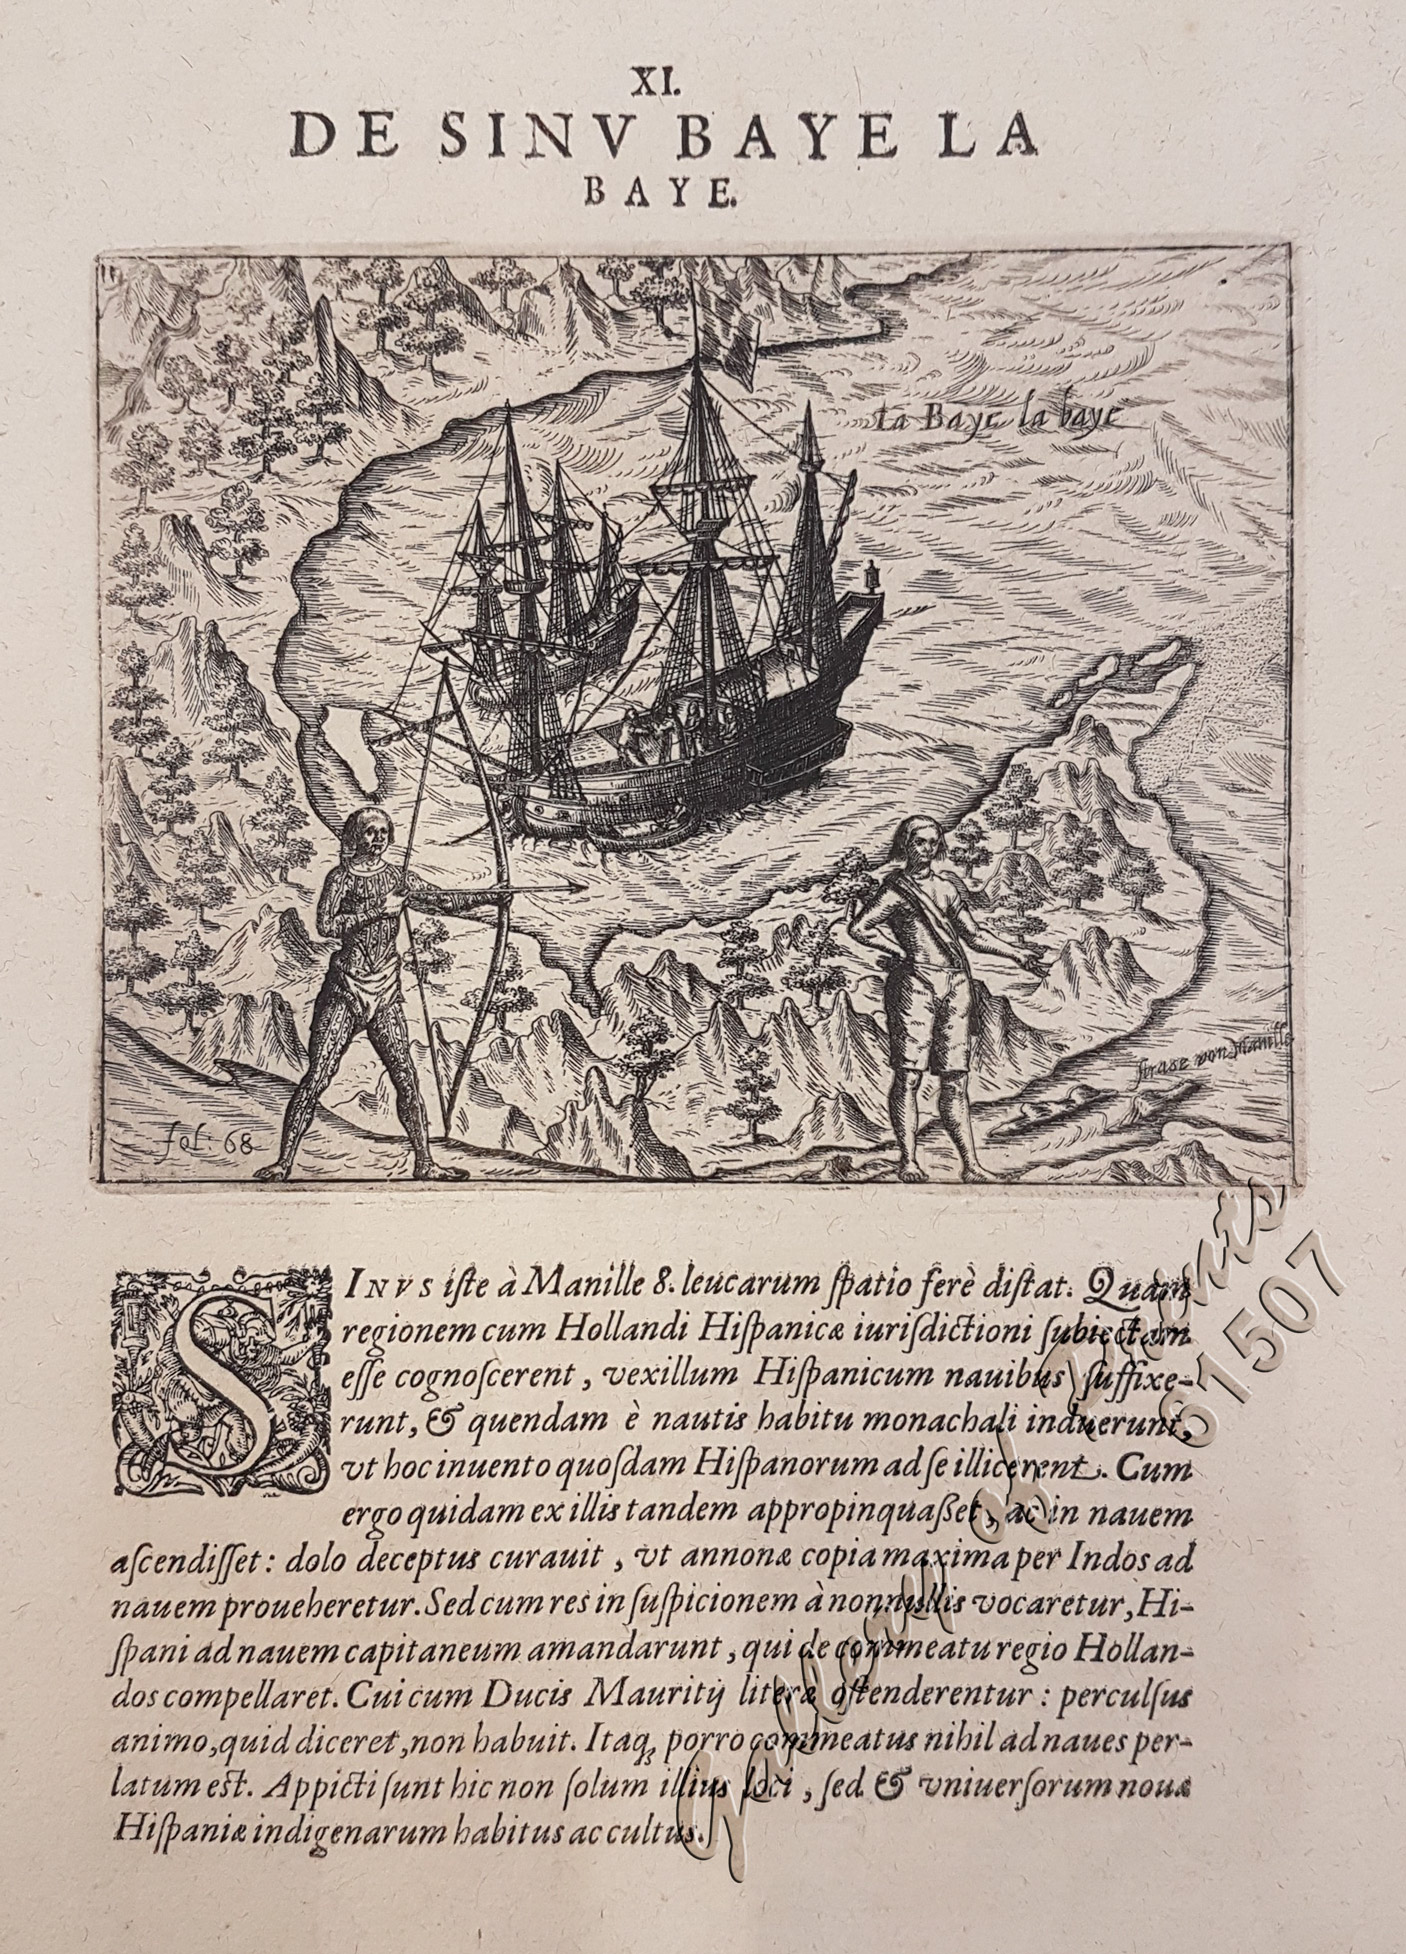 XI.
DE SINV BAYE LA
BAYE.
La Baye la baye
strase von Manille
fol: 68
SINVS iſte à Manille 8. leucarum ſpatio ferè diſtat. Quam
regionem cum Hollandi Hiſpanicæ iuriſdictioni ſubiectam
eſſe cognoſcerent, vexillum Hiſpanicum nauibus ſuffixe-
runt, & quendam è nautis habitu monachali induerunt,
vt hoc inuento quoſdam Hiſpanorum ad ſe illicerent. Cum
ergo quidam ex illis tandem appropinquaßet, ac in nauem
aſcendiſſet: dolo deceptus curauit, vt annonæ copia maxima per Indos ad
nauem proueheretur. Sed cum res in ſuſpicionem à nonnullis vocaretur, Hi-
ſpani ad nauem capitaneum amandarunt, qui de commeatu regio Hollan-
dos compellaret. Cui cum Ducis Mauritij literæ oſtenderentur: perculſus
animo, quid diceret, non habuit. Itaq; porro commeatus nihil ad naues per-
latum eſt. Appicti ſunt hic non ſolum illius loci, ſed & vniuerſorum nouæ
Hiſpaniæ indigenarum habitus ac cultus.
Gallery of Prints
61507